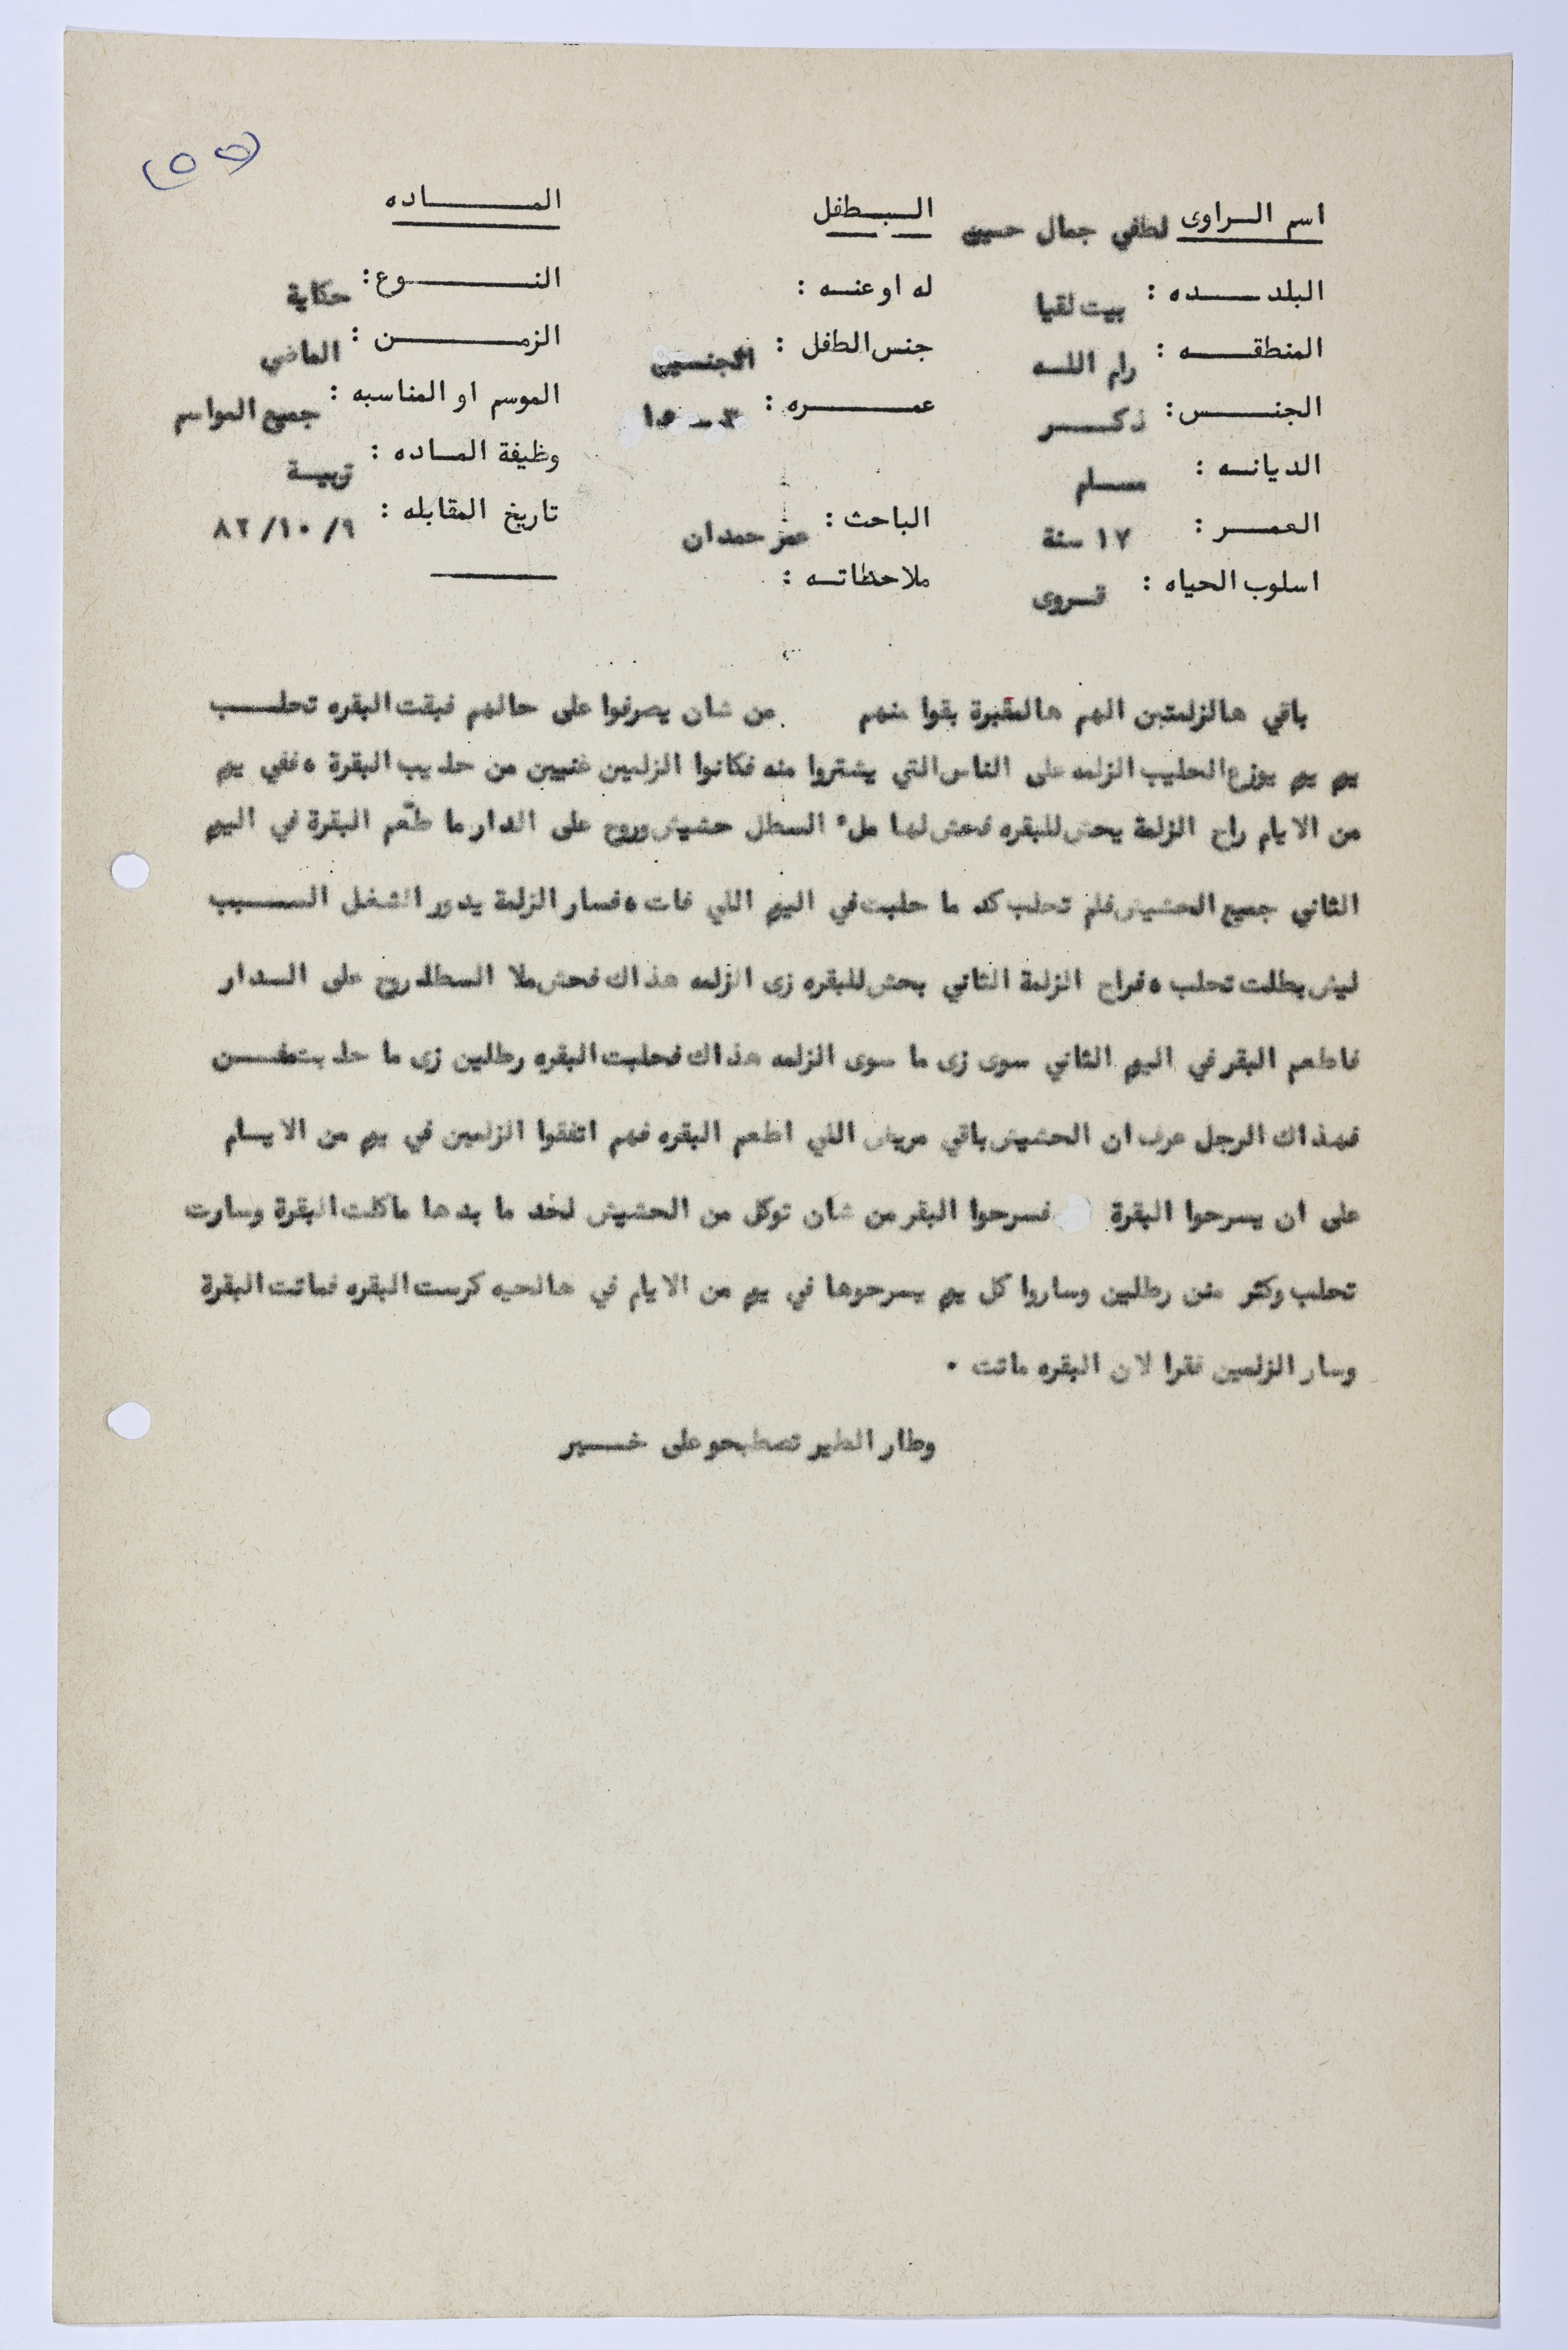 (٥٥)
اسم الراوى لطفي جمال حسين
البلده : بيت لقيا
المنطقه : رام الله
الجنس : ذكر
الديانه : مسلم
العمر : ١٧ سنة
اسلوب الحياه : قروى
البطفل
له او عنه :
جنس الطفل : الجنسين
عمره : ٣ - ١٥
الباحث : عمر حمدان
ملاحظاته :
الماده
النوع : حكاية
الزمن : الماضي
الموسم او المناسبه : جميع المواسم
وظيفة الماده : تربية
تاريخ المقابله : ٩/ ١٠/ ٨٢
باقي هالزلمتين الهم هالبقرة بقوا منهم من شان يصرفوا على حالهم فبقت البقره تحلب
يوم يوم يوزع الحليب الزلمه على الناس التي يشتروا منه فكانوا الزلمين غنيين من حليب البقرة ، ففي يوم
من الايام راح الزلمة يحش للبقره فحش لها ملء السطل حشيش وروح على الدار ما طّعم البقرة في اليوم
الثاني جميع الحشيش فلم تحلب كد ما حلبت في اليوم اللي فات ، فسار الزلمة يدور الشغل السبب
ليش بطلت تحلب ، فراح الزلمة الثاني يحش للبقره زى الزلمه هذاك فحش ملا السطل روح على الدار
فاطعم البقر في اليوم الثاني سوى زى ما سوى الزلمه هذاك فحلبت البقره رطلين زى ما حلبت
فهذاك الرجل عرف ان الحشيش باقي مريض اللي اطعم البقره فهم اتفقوا الزلمين في يوم من الايام
على ان يسرحوا البقرة فسرحوا البقر من شان توكل من الحشيش لحد ما بدها ماكلت البقرة وسارت
تحلب وكثر من رطلين وساروا كل يوم يسرحوها في يوم من الايام في هالحيه كرست البقره فماتت البقرة
وسار الزلمين فقرا لان البقره ماتت .
وطار الطير تصطبحو على خير